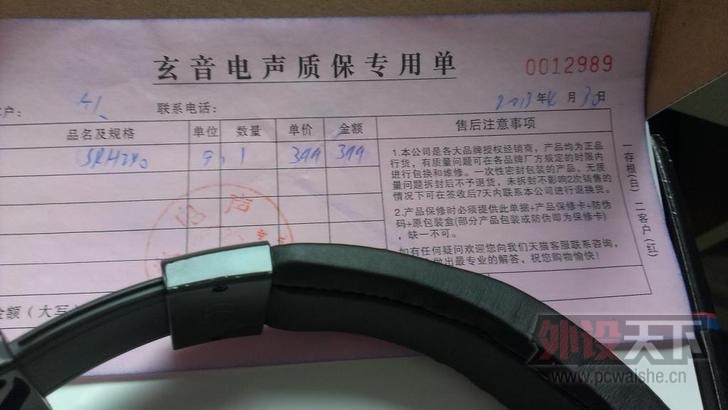 玄音电声质保专用单
0012989
户:
联系电话:
2013年4月30日
品名及规格 单位 数量 单价 金额 售后注意事项
SRH240 1 399 399
1.本公司是各大品牌授权经销商，产品均为正品
行货，有质量问题可在各品牌厂方规定的时限内
进行包换和维修。一次性密封包装的产品，无质
量问题拆封后不予退货，未拆封不影响2次销售的
情况下可在签收后7天内联系本公司进行退换货。
2.产品保修时必须提供此单据+产品保修卡+防伪
码+原包装盒(部分产品包装或防伪即为保修卡)
,缺一不可。
如有任何疑问欢迎您向我们天猫客服联系咨询,
做出最专业的解答，祝您购物愉快!
一存根(白) 二客户(红)
金额(大写
外设天下
www.pcwaishe.cn